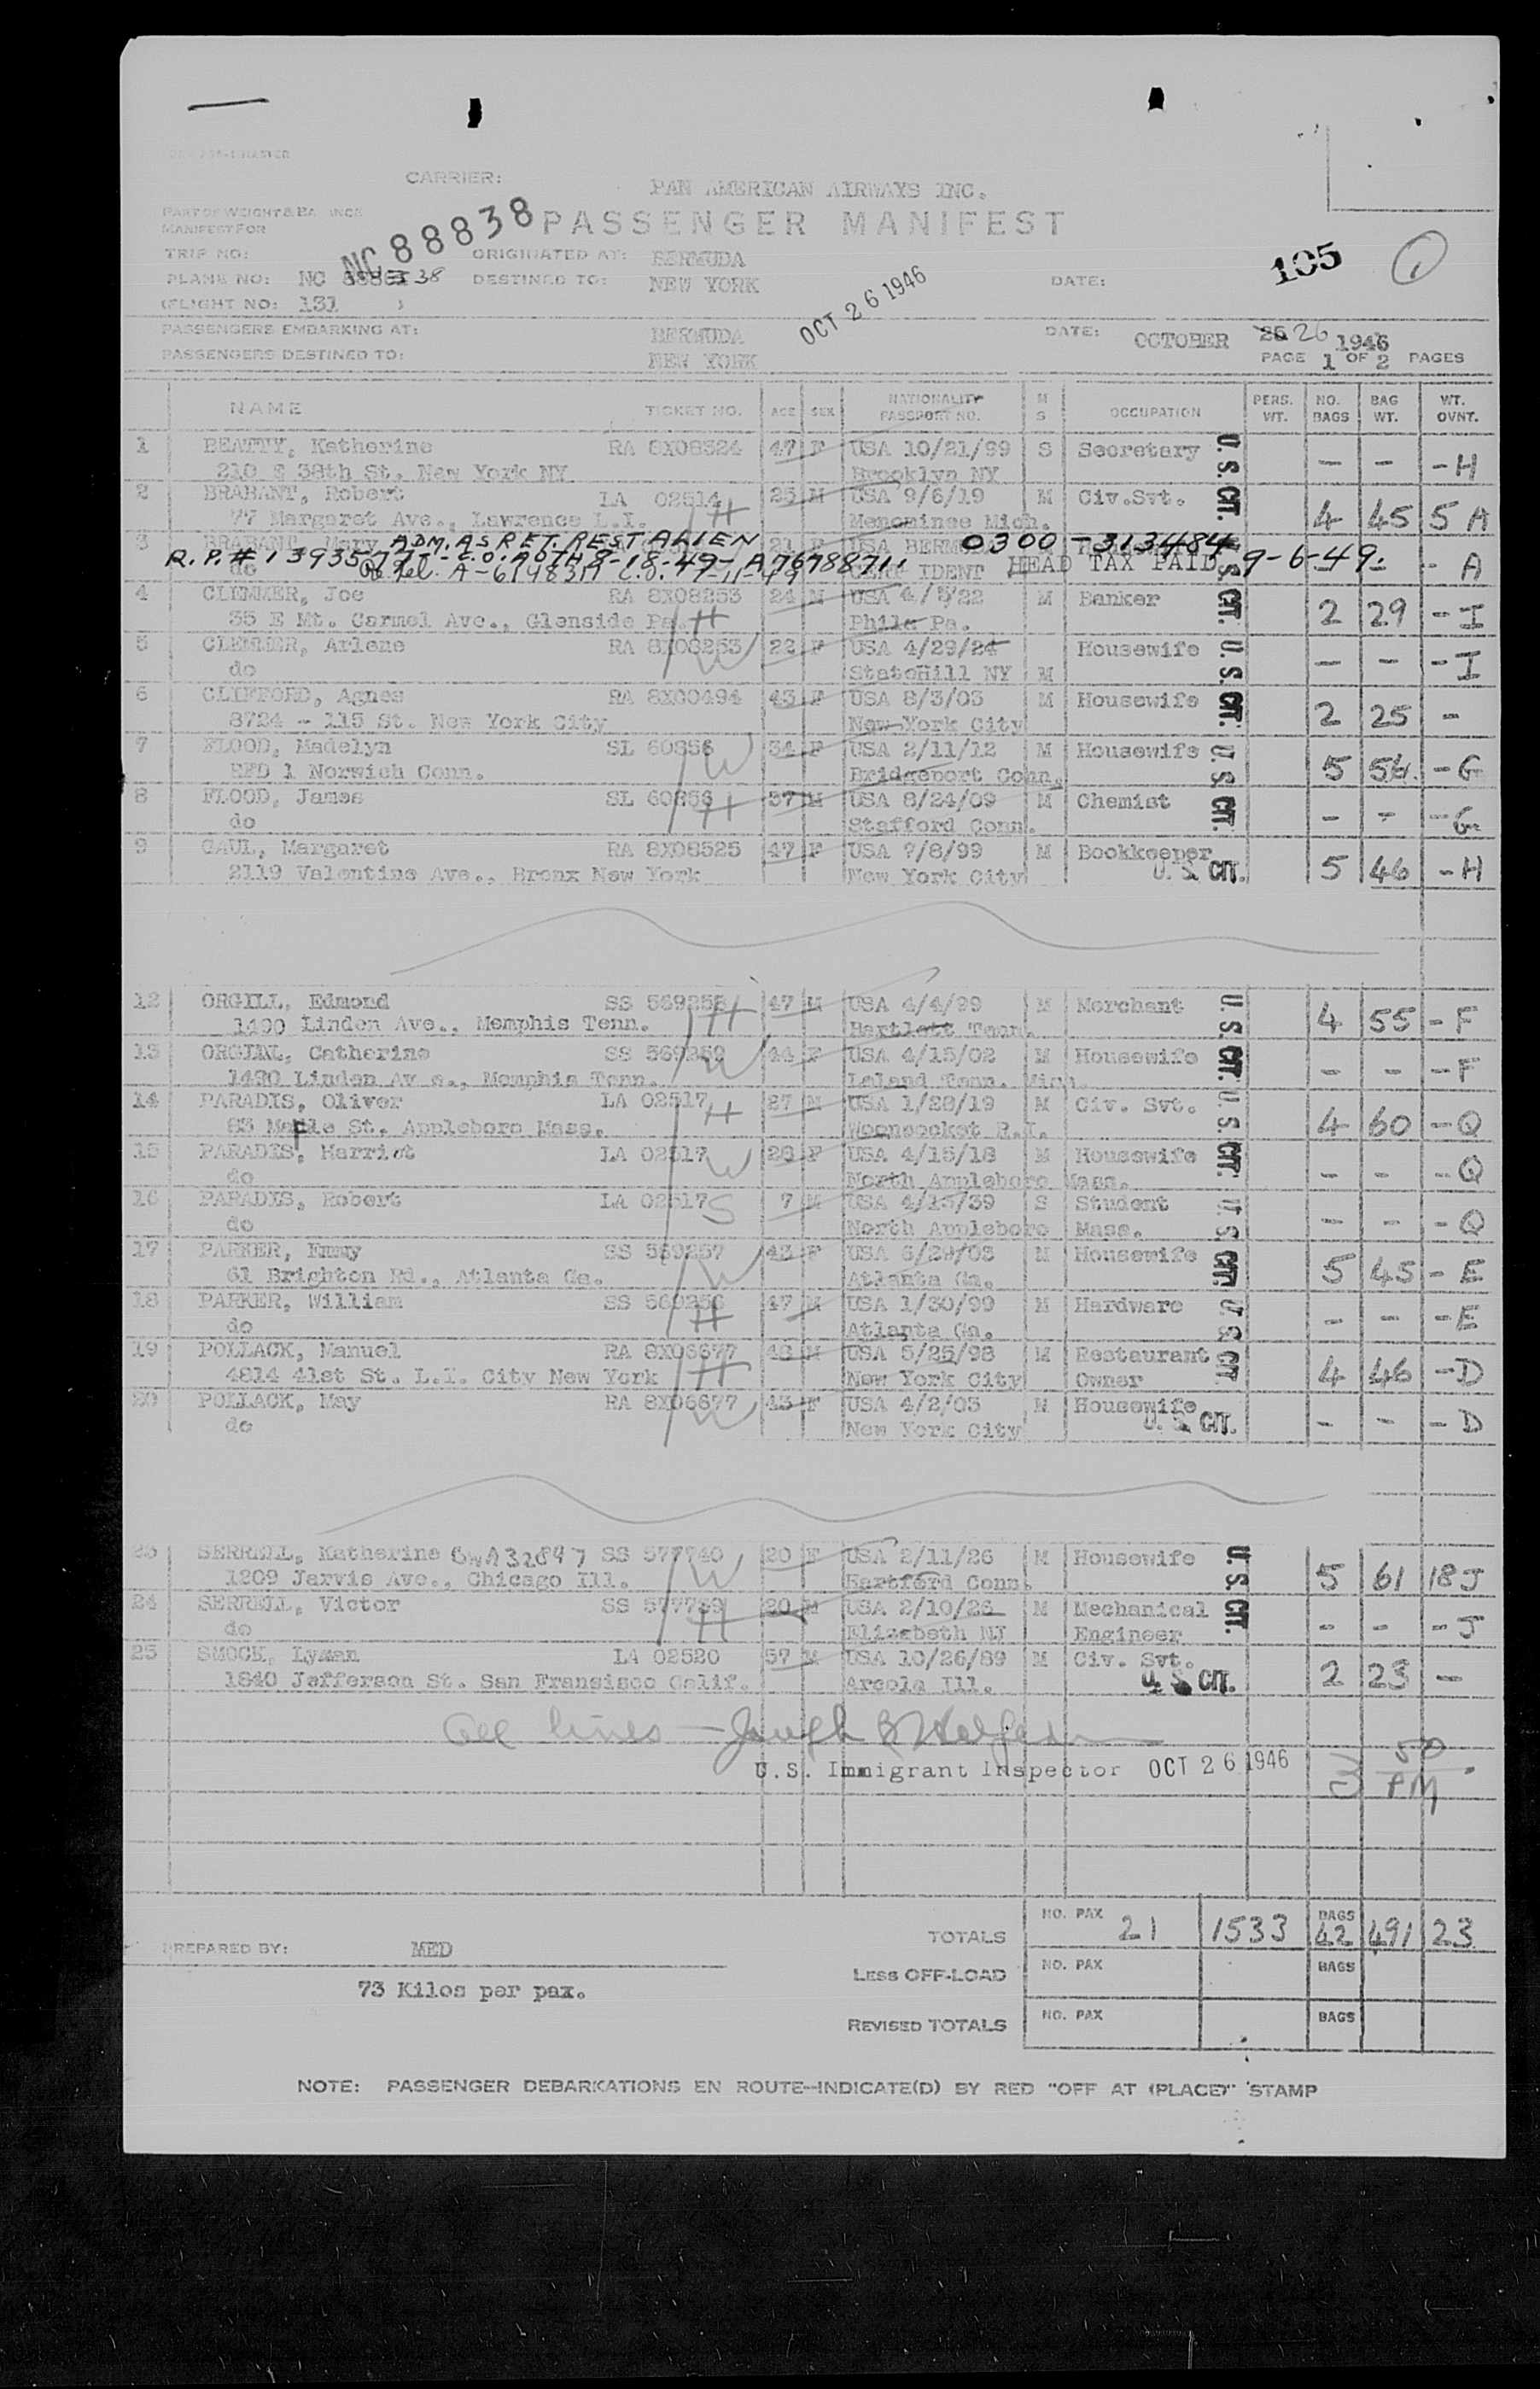 CARRIER: PAN AMERICAN AIRWAYS INC.
PART OF WEIGHT & BALANCE
MANIFEST FOR
NC88838 PASSENGER MANIFEST
TRIP NO: ORIGINATED AT: BERMUDA
PLANE NO: NC 38 DESTINED TO: NEW YORK DATE: 105
(FLIGHT NO: 131 ) OCT 26 1946
PASSENGERS EMBARKING AT: BERMUDA DATE: OCTOBER 26 1946
PASSENGERS DESTINED TO: NEW YORK PAGE 1 OF 2 PAGES
NAME TICKET NO. AGE SEX NATIONALITY PASSPORT NO. M S OCCUPATION PERS. WT. NO. BAGS BAG WT. WT. OVNT.
1 BEATTY, Katherine RA 8X08324 47 F USA 10/21/99 S Secretary U.S. CIT. - - - H
210 E 38th St. New York NY Brooklyn NY
2 BRABANT, Robert LA 02514 H 25 M USA 9/6/19 M Civ.Svt. 4 45 5 A
77 Margaret Ave., Lawrence L.I. Menominee Mich.
3 BRABANT, Mary ADM. AS RET. REST ALIEN 21 F USA 0300-313484
R.P.# 8-18-49-A7678871. IDENT HEAD TAX PAID 9-6-49. - A
4 CLEMMER, Joe RA 8X08253 H 24 M USA 4/5/22 M Banker 2 29 - I
35 E Mt. Carmel Ave., Glenside Pa. Phila Pa.
5 CLEMMER, Arlene RA 8X08253 W 22 F USA 4/29/24 Housewife U.S. CIT. - - - I
do StateHill NY M
6 CLIFFORD, Agnes RA 8X00494 43 F USA 8/3/03 M Housewife 2 25 -
8724 - 115 St. New York City New York City
7 FLOOD, Madelyn SL 60856 W 34 F USA 2/11/12 M Housewife U.S. CIT. 5 54 - G
RFD 1 Norwich Conn. Bridgeport Conn.
8 FLOOD, James SL 60856 H 37 M USA 8/24/09 M Chemist - - - G
do Stafford Conn.
9 GAUL, Margaret RA 8X08325 47 F USA 7/8/99 M Bookkeeper 5 46 - H
2119 Valentine Ave., Bronx New York New York City U.S. CIT.
12 ORGILL, Edmond SS 569258 H 47 M USA 4/4/99 M Merchant U.S. CIT. 4 55 - F
1490 Linden Ave., Memphis Tenn. Bartlett Tenn.
13 ORGILL, Catherine SS 569259 W 44 F USA 4/15/02 M Housewife - - - F
1490 Linden Av e., Memphis Tenn. Leland Tenn. Mich.
14 PARADIS, Oliver LA 02517 H 27 M USA 1/28/19 M Civ. Svt. U.S. CIT. 4 60 - Q
83 Maple St. Appleboro Mass. Woonsocket R.I.
15 PARADIS, Harriet LA 02517 W 28 F USA 4/15/18 M Housewife - - - Q
do North Appleboro Mass.
16 PARADIS, Robert LA 02517 S 7 M USA 4/13/39 S Student U.S. CIT. - - - Q
do North Appleboro Mass.
17 PARKER, Emmy SS 569257 W 43 F USA 6/29/03 M Housewife 5 45 - E
61 Brighton Rd., Atlanta Ga. Atlanta Ga.
18 PARKER, William SS 569256 H 47 M USA 1/30/99 M Hardware U.S. CIT - - - E
do Atlanta Ga.
19 POLLACK, Manuel RA 8X06677 H 48 M USA 5/25/98 M Restaurant 4 46 - D
4814 41st St. L.I. City New York New York City Owner
20 POLLACK, May RA 8X06677 W 43 F USA 4/2/03 M Housewife - - - D
do New York City U.S. CIT.
23 SERRELL, Katherine SS 577740 W 20 F USA 2/11/26 M Housewife U.S. CIT. 5 61 18 J
1209 Jarvis Ave., Chicago Ill. Hartford Conn.
24 SERRELL, Victor SS 577739 H 20 M USA 2/10/26 M Mechanical - - - J
do Elizabeth NJ Engineer
25 SMOCK, Lyman LA 02520 57 M USA 10/26/89 M Civ. Svt. 2 23 -
1840 Jefferson St. San Fransisco Calif. Arcola Ill. U.S. CIT.
All lines - Joseph B
U.S. Immigrant Inspector OCT 26 1946 3 50 PM
TOTALS NO. PAX 21 1533 BAGS 42 491 23
PREPARED BY: MED
LESS OFF-LOAD NO. PAX BAGS
73 Kilos per pax.
REVISED TOTALS NO. PAX BAGS
NOTE: PASSENGER DEBARKATIONS EN ROUTE--INDICATE(D) BY RED "OFF AT (PLACE)" STAMP